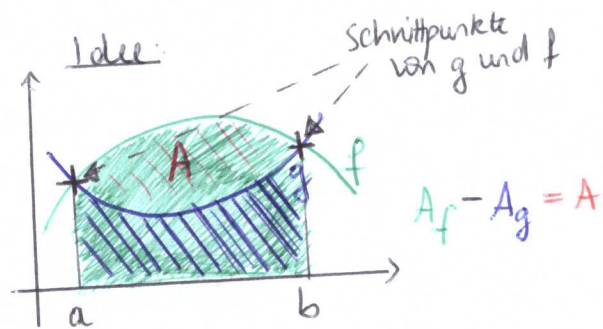 Idee:
Schnittpunkte
von g und f
A
f
g
A_f - A_g = A
a
b